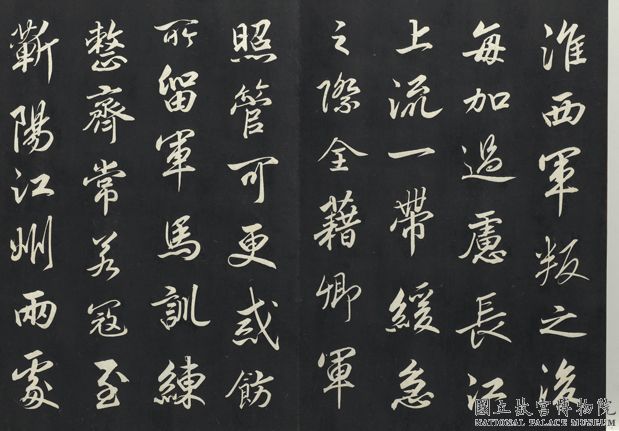 淮西軍叛之後
每加過慮長江
上流一帶緩急
之際全藉卿軍
照管可更戒飭
所留軍馬訓練
整齊常若寇至
蘄陽江州兩處
國立故宮博物院
NATIONAL PALACE MUSEUM